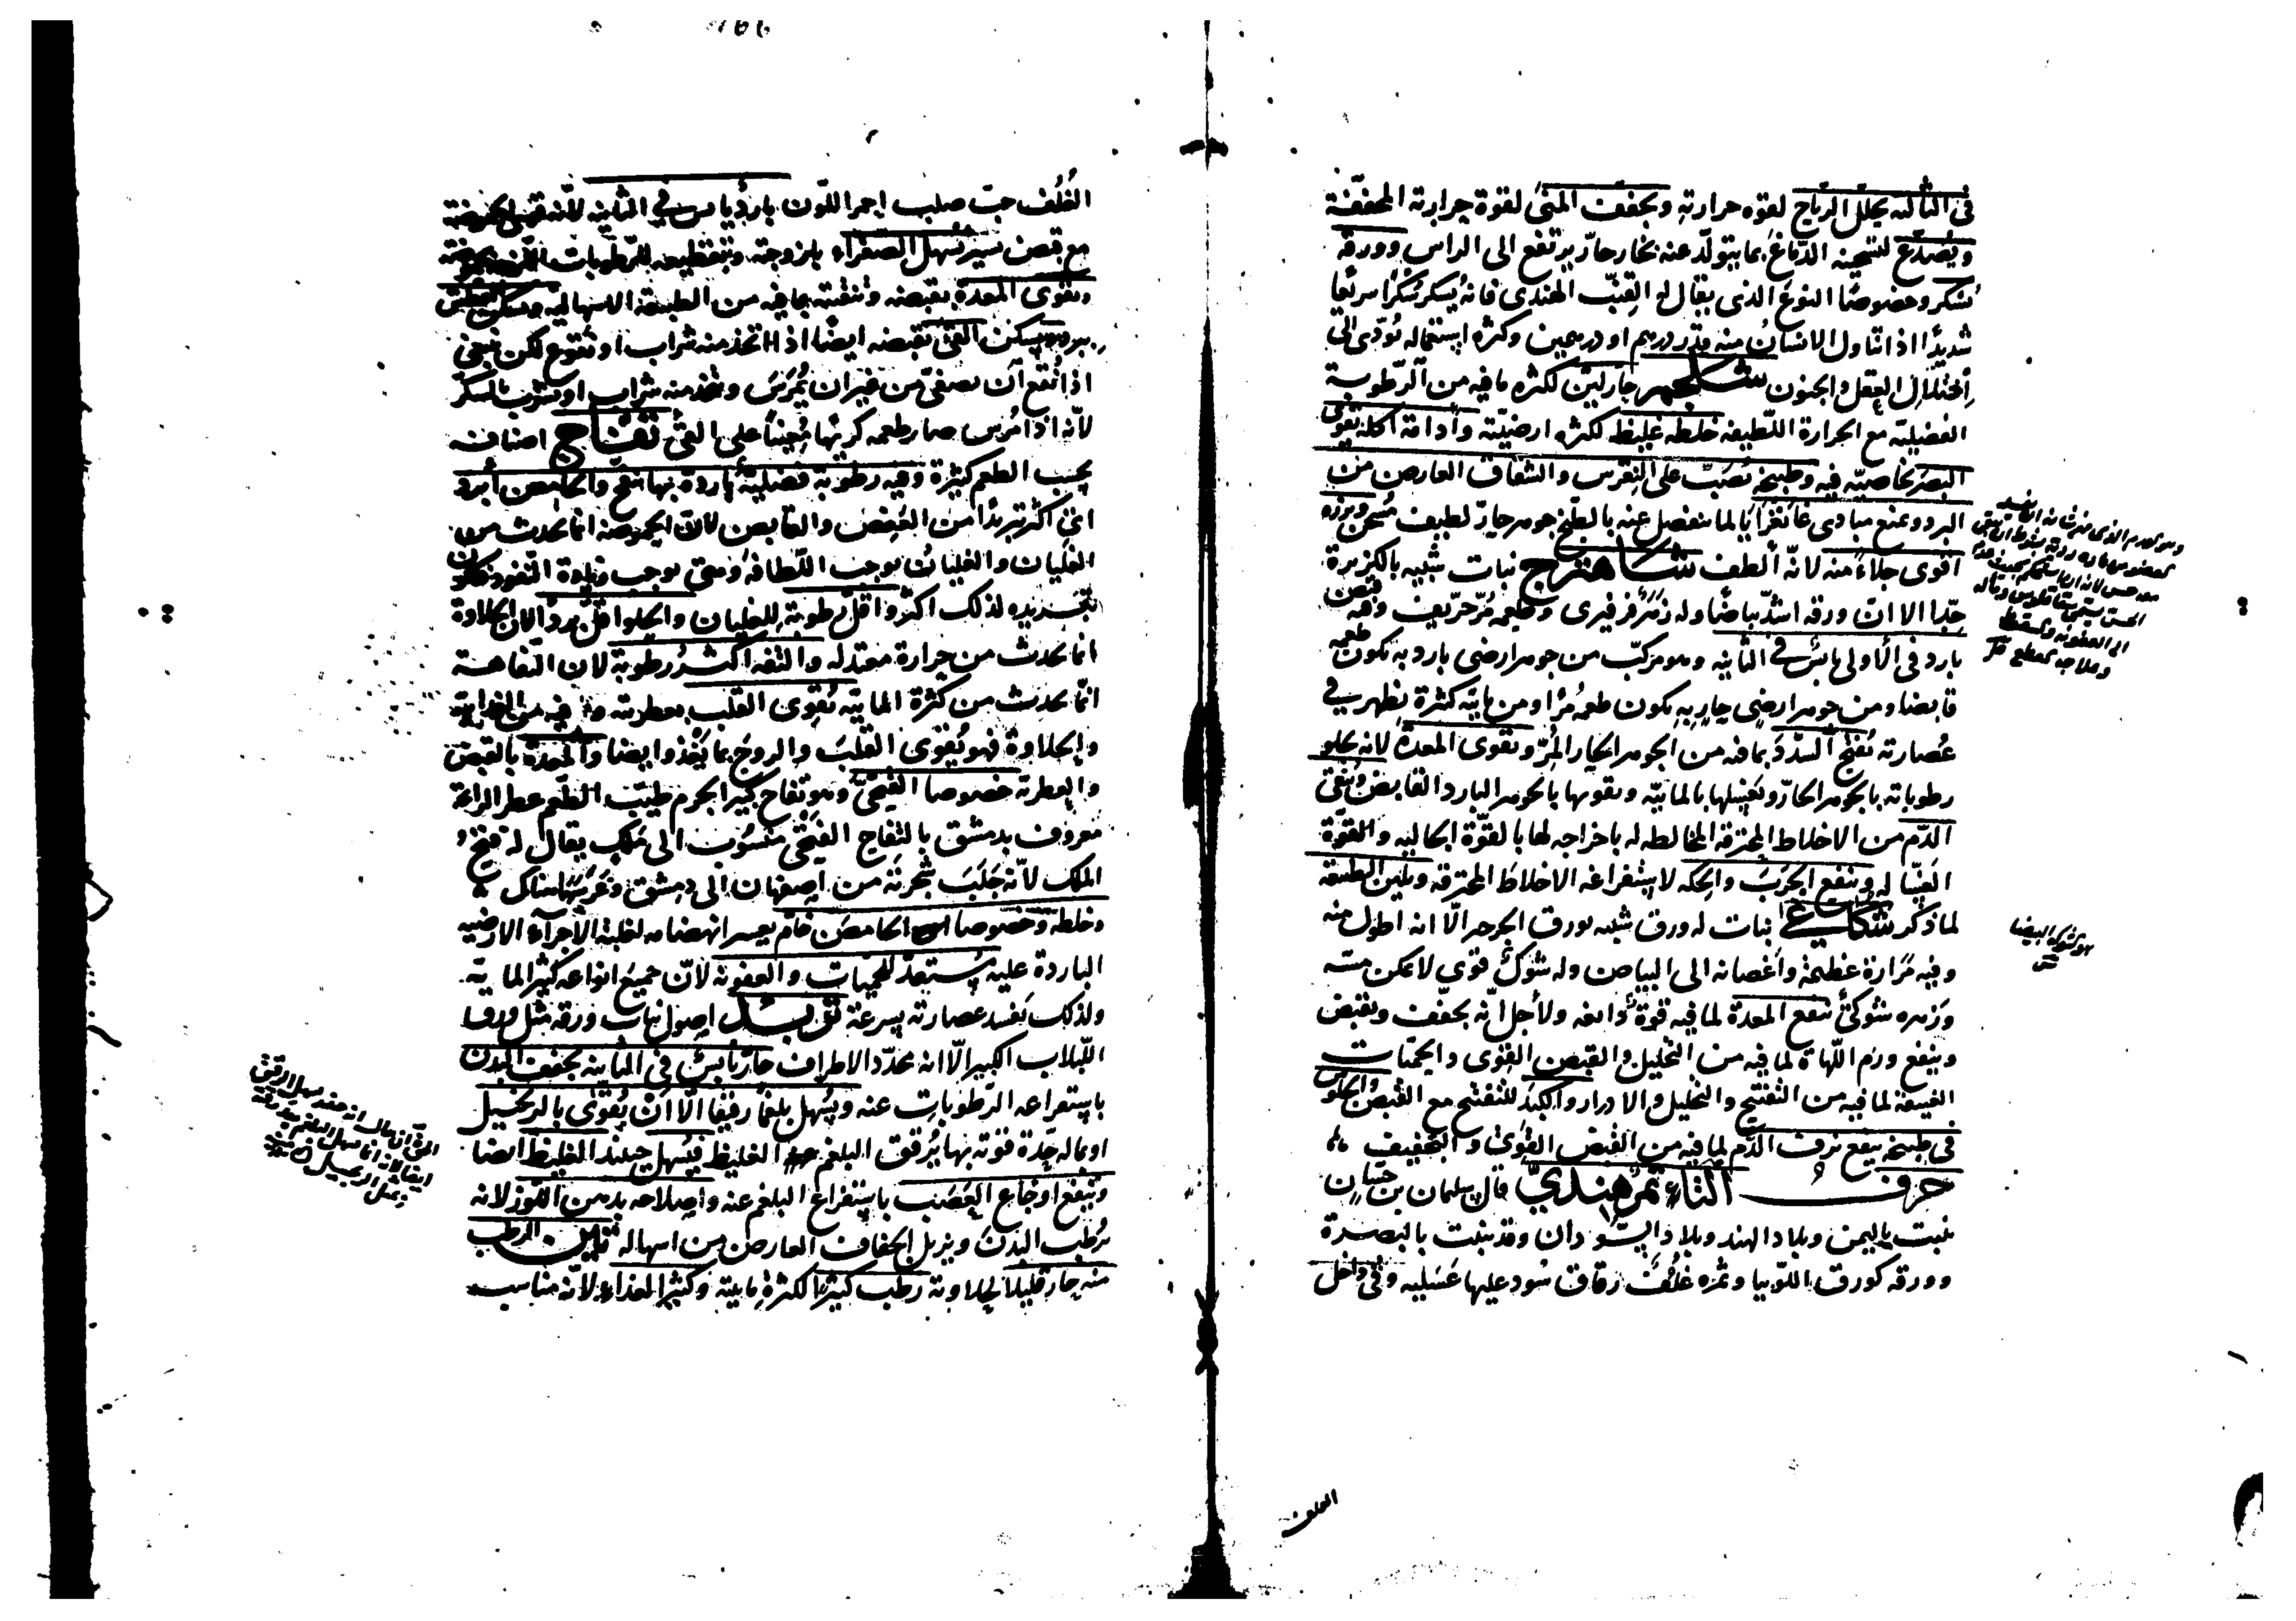 في الثالثة يحلل الرياح لقوة حرارته ويجفف المني لقوة حرارته المجففة
ويصدع لتسخينه الدماغ بما يتولد عنه بخار حار يرتفع الى الراس وورقه
يسكر وخصوصا النوع الذي يقال له القنب الهندي فانه يسكر سكرا سريعا
شديدا اذا تناول الانسان منه قدر درهم او درهمين وكثرة استعماله تؤدى الى
اختلال العقل والجنون حار لين لكثرة ما فيه من الرطوبة
الفضلية مع الحرارة اللطيفة خلطه غليظ لكثرة ارضيته وادامة اكله تقوى
البصر بخاصية فيه وطبيخه يصب على النقرس والشقاق العارض من
البرد ويمنع مبادى غانغرايا لما ينفصل عنه بالطبخ جوهر حار لطيف مسخن وبزره
اقوى جلاء منه لانه ألطف شاهترج نبات شبيه بالكزبرة
جدا الا ان ورقه اشد بياضا وله زهر فرفيرى وطعمه مر حريف وفيه قبض
بارد في الاولى يابس في الثانية وهو مركب من جوهر ارضى بارد به يكون طعمه
قابضا ومن جوهر ارضى حار به يكون طعمه مرا ومن مائية كثيرة تظهر في
عصارته يفتح السدد بما فيه من الجوهر الحار المر ويقوى المعدة لانه يجلو
رطوباته بالجوهر الحار ويغسلها بالمائية ويقويها بالجوهر البارد القابض وينقى
الدم من الاخلاط المحترقة المخالطة له باخراجه لها بالقوة الجالية والقوة
الغسالة وينفع الجرب والحكة لاستفراغه الاخلاط المحترقة ويلين الطبيعة
لما ذكر شكاعى نبات له ورق شبيه بورق الجرجر الا انه اطول منه
وفيه مرارة عظيمة واغصانه الى البياض وله شوك قوى لا يمكن مسه
وزهره شوكى ينفع المعدة لما فيه قوة دابغة ولأجل انه يجفف ويقبض
وينفع ورم اللهاة لما فيه من التحليل والقبض القوى والحميات
العتيقة لما فيه من التفتيح والتحليل والادرار والكبد للتفتيح مع القبض والجلوس
فى طبيخه ينفع نزف الدم لما فيه من القبض القوى والتجفيف
حرف التاء تمر هندى قال سليمان بن حسان
ينبت باليمن وبلاد الهند وبلاد السودان وقد ينبت بالبصرة
وورقه كورق اللوبيا وثمره غلف رقاق سود عليها عسلية وفى داخل
هو شوكة البيضا
الغلف
الغلف حب صلب احمر اللون بارد يابس في الثانية لانه قوى الحموضة
مع قبض يسير يسهل الصفراء بلزوجته وبتقطيعه للرطوبات
ويقوى المعدة بقبضه وتنقيته بما فيه من الطبيعة الاسهالية ويسكن العطش
ببرده ويسكن القئ بقبضه ايضا اذا اتخذ منه شراب او نقوع لكن ينبغى
اذا نقع ان يصفى من غير ان يمرس ويتخذ منه شراب او يشرب بالسكر
لانه اذا مرس صار طعمه كريها معينا على القئ تفاح اصناف
بحسب الطعم كثيرة وفيه رطوبة فضلية باردة بها ينفخ والحامض أبرد
اى اكثر تبريدا من العفص والقابض لان الحموضة انما تحدث من
الغليان والغليان يوجب اللطافة وهى توجب زيادة النفوذ فيكون
تبريده لذلك اكثر واقل رطوبة للغليان والحلو اقل بردا لان الحلاوة
انما تحدث من حرارة معتدلة والتفه اكثر رطوبة لان التفاهة
انما تحدث من كثرة المائية يقوى القلب بعطريته وما فيه من الغذائية
والحلاوة فهو يقوى القلب والروح بما يغذو ايضا والمعدة بالقبض
والعطرية خصوصا الفتحى وهو تفاح كبير الجرم طيب الطعم عطر الرائحة
معروف بدمشق بالتفاح الفتحى منسوب الى ملك يقال له فتح
الملك لانه جلب شجرته من اصفهان الى دمشق وغرسها هناك
وخلطه وخصوصا الحامض خام يعسر انهضامه لغلبة الاجزاء الارضية
الباردة عليه مستعد للحميات والعفونة لان جميع انواعه كثير المائية
ولذلك تفسد عصارته بسرعة تربد اصول نبات ورقه مثل ورق
اللبلاب الكبير الا انه محدد الاطراف حار يابس في الثانية يجفف البدن
باستفراغه الرطوبات عنه ويسهل بلغما رقيقا الا ان يقوى بالزنجبيل
او بماله حدة قوته بها يرقق البلغم الغليظ فيسهل حينئذ الغليظ ايضا
وينفع اوجاع العصب باستفراغ البلغم عنه واصلاحه بدهن اللوز لانه
يرطب البدن ويزيل الجفاف العارض من اسهاله تين الرطب
منه حار قليلا لحلاوته رطب كثيرا لكثرة مائيته وكثير الغذاء لانه مناسب